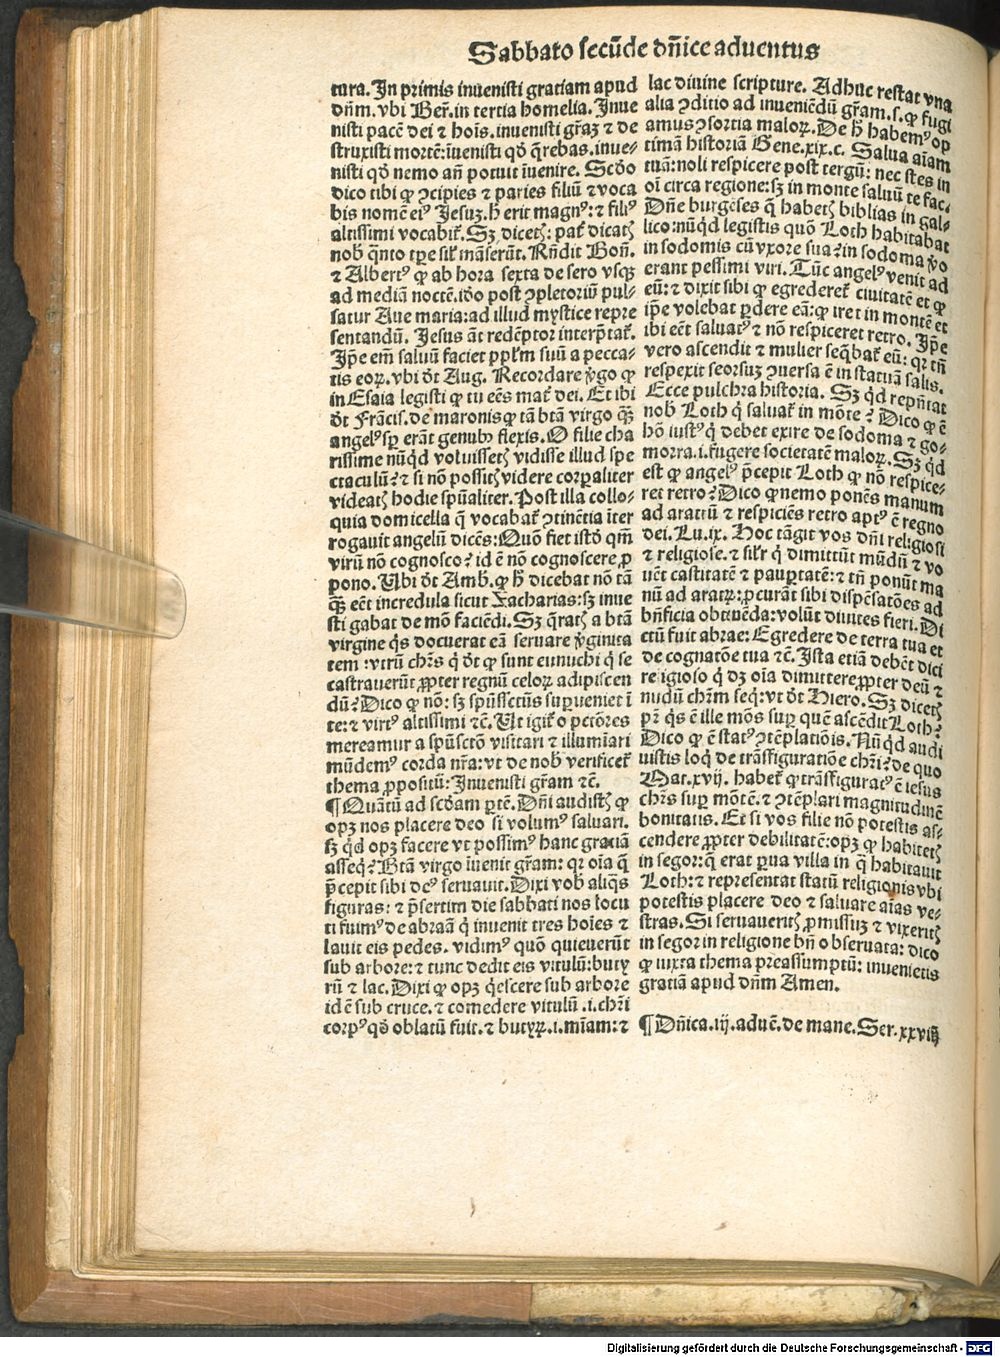 Sabbato secūde dn̄ice aduentus
tura. In primis inuenisti gratiam apud
dn̄m. vbi Ber̄. in tertia homelia. Inue
nisti pacē dei ⁊ hoīs. inuenisti gr̄aꝫ ⁊ de
struxisti mortē: īuenisti qd̄ q̄rebas. inue-
nisti qd̄ nemo an̄ potuit īuenire. Scd̄o
dico tibi ꝙ ꝯcipies ⁊ paries filiū ⁊ voca
bis nomē eiꝰ Jesuꝫ. h̄ erit magnꝰ: ⁊ filiꝰ
altissimi vocabit᷑. Sꝫ dicetꝭ: pat᷑ dicatꝭ
nob̄ q̄nto tꝑe sil᷑ māserūt. Rn̄dit Bon̄.
⁊ Albertꝰ ꝙ ab hora sexta de sero vsqꝫ
ad mediā noctē. iō post ꝯpletoriū pul-
satur Aue maria: ad illud mystice repre
sentandū. Jesus āt redēptor interp̄tat᷑.
Ip̄e em̄ saluū faciet ppl̄m suū a pecca-
tis eoꝝ. vbi dt̄ Aug. Recordare v̄go ꝙ
in Esaia legisti ꝙ tu eēs mat᷑ dei. Et ibi
dt̄ Frācis. de maronis ꝙ tā btā virgo qꝫ̄
angelꝰ sp̄ erāt genubꝰ flexis. O filie cha
rissime nūqd̄ voluissetꝭ vidisse illud spe
ctaculū? ⁊ si nō possitꝭ videre corꝑaliter
videatꝭ hodie spūaliter. Post illa collo-
quia domicella q̄ vocabat᷑ ꝯtinētia īter
rogauit angelū dicēs: Quō fiet istd̄ qm̄
virū nō cognosco? id ē nō cognoscere ꝓ
pono. Ubi dt̄ Amb̄. ꝙ h̄ dicebat nō tā
qꝫ̄ eēt incredula sicut Zacharias: sꝫ inue
sti gabat de mō faciēdi. Sꝫ q̄ratꝭ a btā
virgine qͥs docuerat eā seruare v̄ginita
tem: vtrū chr̄s qͥ dt̄ ꝙ sunt eunuchi qͥ se
castrauerūt ꝓpter regnū celoꝝ adipiscen
dū? Dico ꝙ nō: sꝫ spūssctūs suꝑueniet ī
te: ⁊ virtꝰ altissimi ⁊c̄. Ut igit᷑ o pctōres
mereamur a spūsctō visitari ⁊ illumīari
mūdemꝰ corda nr̄a: vt de nob̄ verificet᷑
thema ꝓpositū: Inuenisti gr̄am ⁊c̄.
¶ Quātū ad scd̄am ꝑtē. Dn̄i audistꝭ ꝙ
opꝫ nos placere deo si volumꝰ saluari.
sꝫ qͥd opꝫ facere vt possimꝰ hanc gratiā
asseqͥ? Btā virgo īuenit gr̄am: qꝛ oīa q̄
p̄cepit sibi deꝰ seruauit. Dixi vob̄ aliqͣs
figuras: ⁊ p̄sertim die sabbati nos locu
ti fuimꝰ de abraā qͥ inuenit tres hoīes ⁊
lauit eis pedes. vidimꝰ quō quieuerūt
sub arbore: ⁊ tunc dedit eis vitulū: buty
rū ⁊ lac. Dixi ꝙ opꝫ qͥescere sub arbore
id ē sub cruce. ⁊ comedere vitulū .i. chr̄i
corpꝰ qd̄ oblatū fuit. ⁊ butyꝝ. i. mīam: ⁊
lac diuine scripture. Adhuc restat vna
alia ꝯditio ad inueniēdū gr̄am. s. ꝙ fugi
amus ꝯsortia maloꝝ. De h̄ habemꝰ op
timā historiā Gene. xix. c. Salua aīam
tuā: noli respicere post tergū: nec stes in
oī circa regione: sꝫ in monte saluū te fac.
Dn̄e burgēses q̄ habetꝭ biblias in gal-
lico: nūqd̄ legistis quō Loth habitabat
in sodomis cū vxore sua? in sodoma v̄o
erant pessimi viri. Tūc angelꝰ venit ad
eū: ⁊ dixit sibi ꝙ egrederet᷑ ciuitatē et ꝙ
ip̄e volebat ꝑdere eā: ꝙ iret in montē et
ibi eēt saluatꝰ ⁊ nō respiceret retro. Ip̄e
vero ascendit ⁊ mulier seq̄bat᷑ eū: qꝛ tn̄
respexit seorsuꝫ ꝯuersa ē in statuā salis.
Ecce pulchra historia. Sꝫ qͥd repn̄tat
nob̄ Loth qͥ saluat᷑ in mōte? Dico ꝙ ē
hō iustꝰ qͥ debet exire de sodoma ⁊ go-
morra. i. fugere societatē maloꝝ. Sꝫ qͥd
est ꝙ angelꝰ p̄cepit Loth ꝙ nō respice-
ret retro? Dico ꝙ nemo ponēs manum
ad aratrū ⁊ respiciēs retro aptꝰ ē regno
dei. Lu. ix. Hoc tāgit vos dn̄i religiosi
⁊ religiose. ⁊ sil᷑r qͥ dimittūt mūdū ⁊ vo
uēt castitatē ⁊ pauꝑtatē: ⁊ tn̄ ponūt ma
nū ad aratꝝ: ꝓcurāt sibi dispēsatōes ad
bn̄ficia obtinēda: volūt diuites fieri. Di
ctū fuit abrae: Egredere de terra tua et
de cognatōe tua ⁊c̄. Ista etiā debēt dici
religioso qͥ dꝫ oīa dimittere ꝓpter deū ⁊
nudū chr̄m seqͥ: vt dt̄ Hiero. Sꝫ dicetꝭ
pr̄ qͥs ē ille mōs suꝑ quē ascēdit Loth?
Dico ꝙ ē statꝰ ꝯtēplatiōis. Nūqd̄ audi
uistis loqͥ de trāsfiguratiōe chr̄i? de quo
Mat. xvij. habet᷑ ꝙ trāsfiguratꝰ ē iesus
chr̄s suꝑ mōtē. ⁊ ꝯtēplari magnitudinē
bonitatis. Et si vos filie nō potestis as-
cendere ꝓpter debilitatē: opꝫ ꝙ habitetꝭ
in segor: q̄ erat ꝑua villa in q̄ habitauit
Loth: ⁊ representat statū religionis vbi
potestis placere deo ⁊ saluare aīas ve-
stras. Si seruaueritꝭ ꝓmissuꝫ ⁊ vixeritꝭ
in segor in religione bn̄ obseruata: dico
ꝙ iuxta thema preassumptū: inuenietis
gratiā apud dn̄m Amen.
¶ Dn̄ica. iij. aduē. de mane. Ser. xxviij
Digitalisierung gefördert durch die Deutsche Forschungsgemeinschaft - DFG